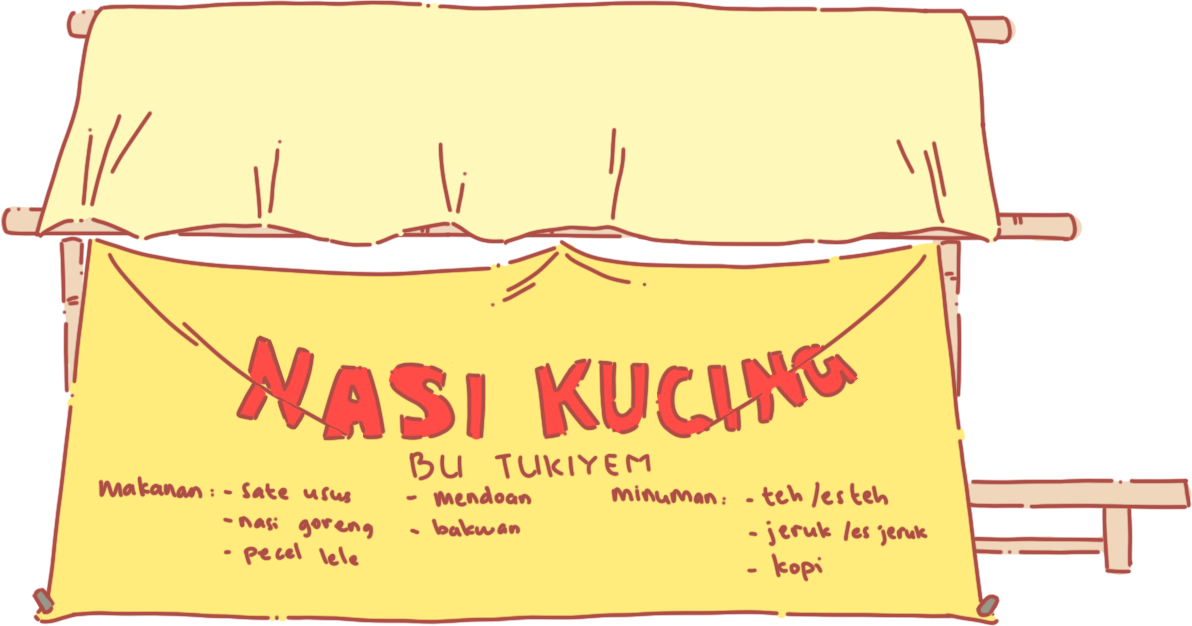 NASI KUCING
BU TUKIYEM
Makanan: - sate usus
- nasi goreng
- pecel lele
- mendoan
- bakwan
minuman: - teh /es teh
- jeruk /es jeruk
- kopi